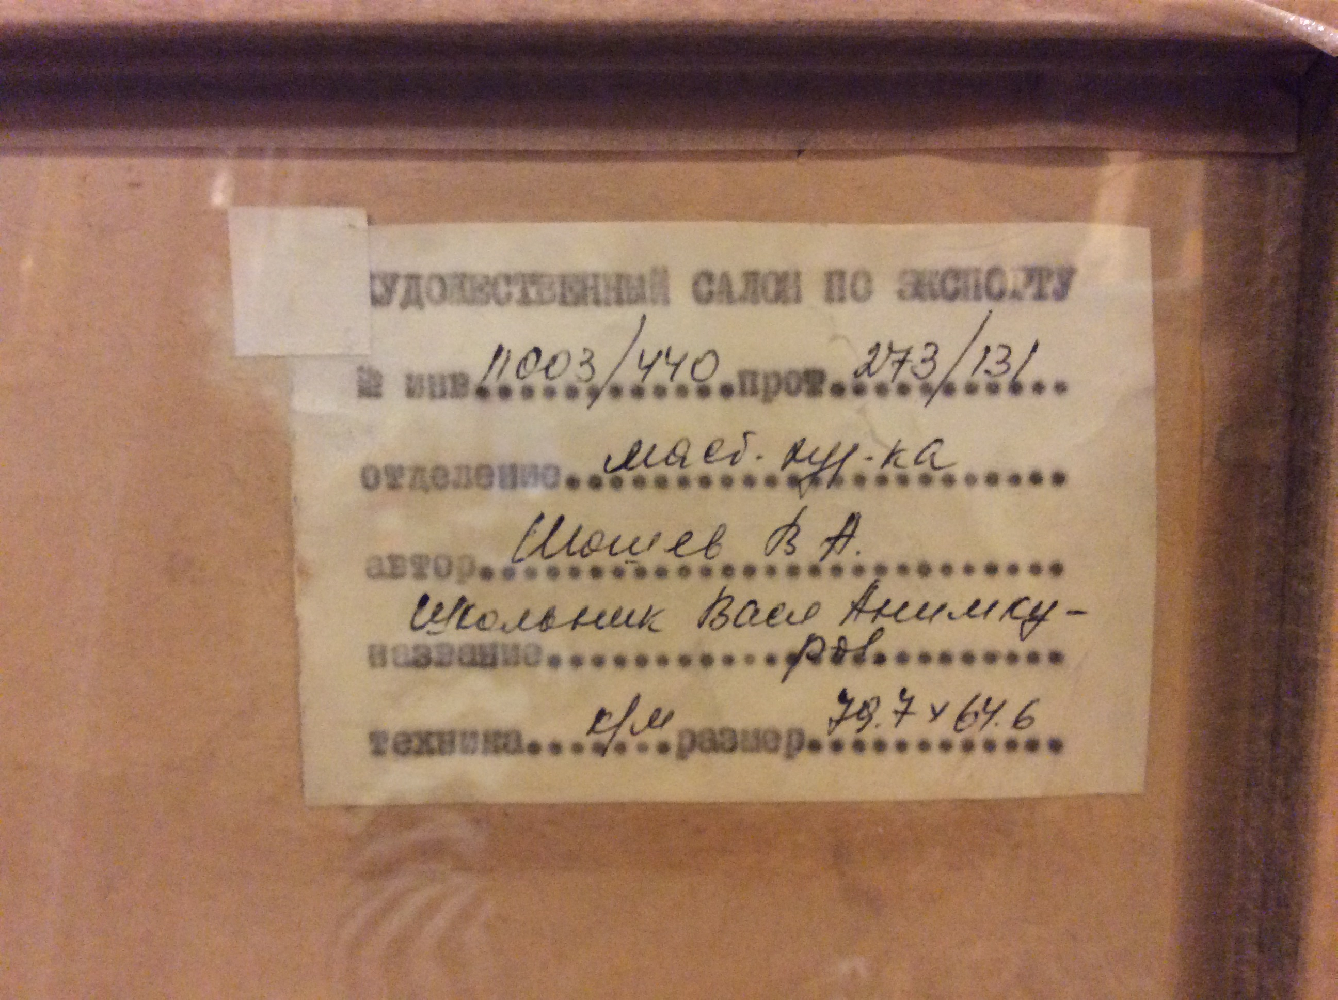 ХУДОЖЕСТВЕННЫЙ САЛОН ПО ЭКСПОРТУ
№ инв. 11003/440 прот. 273/131
отделение маст. худ-ка
автор Шошев В А.
Школьник Вася Анимку-
название ров
техника к/м размер 79.7 х 64.6